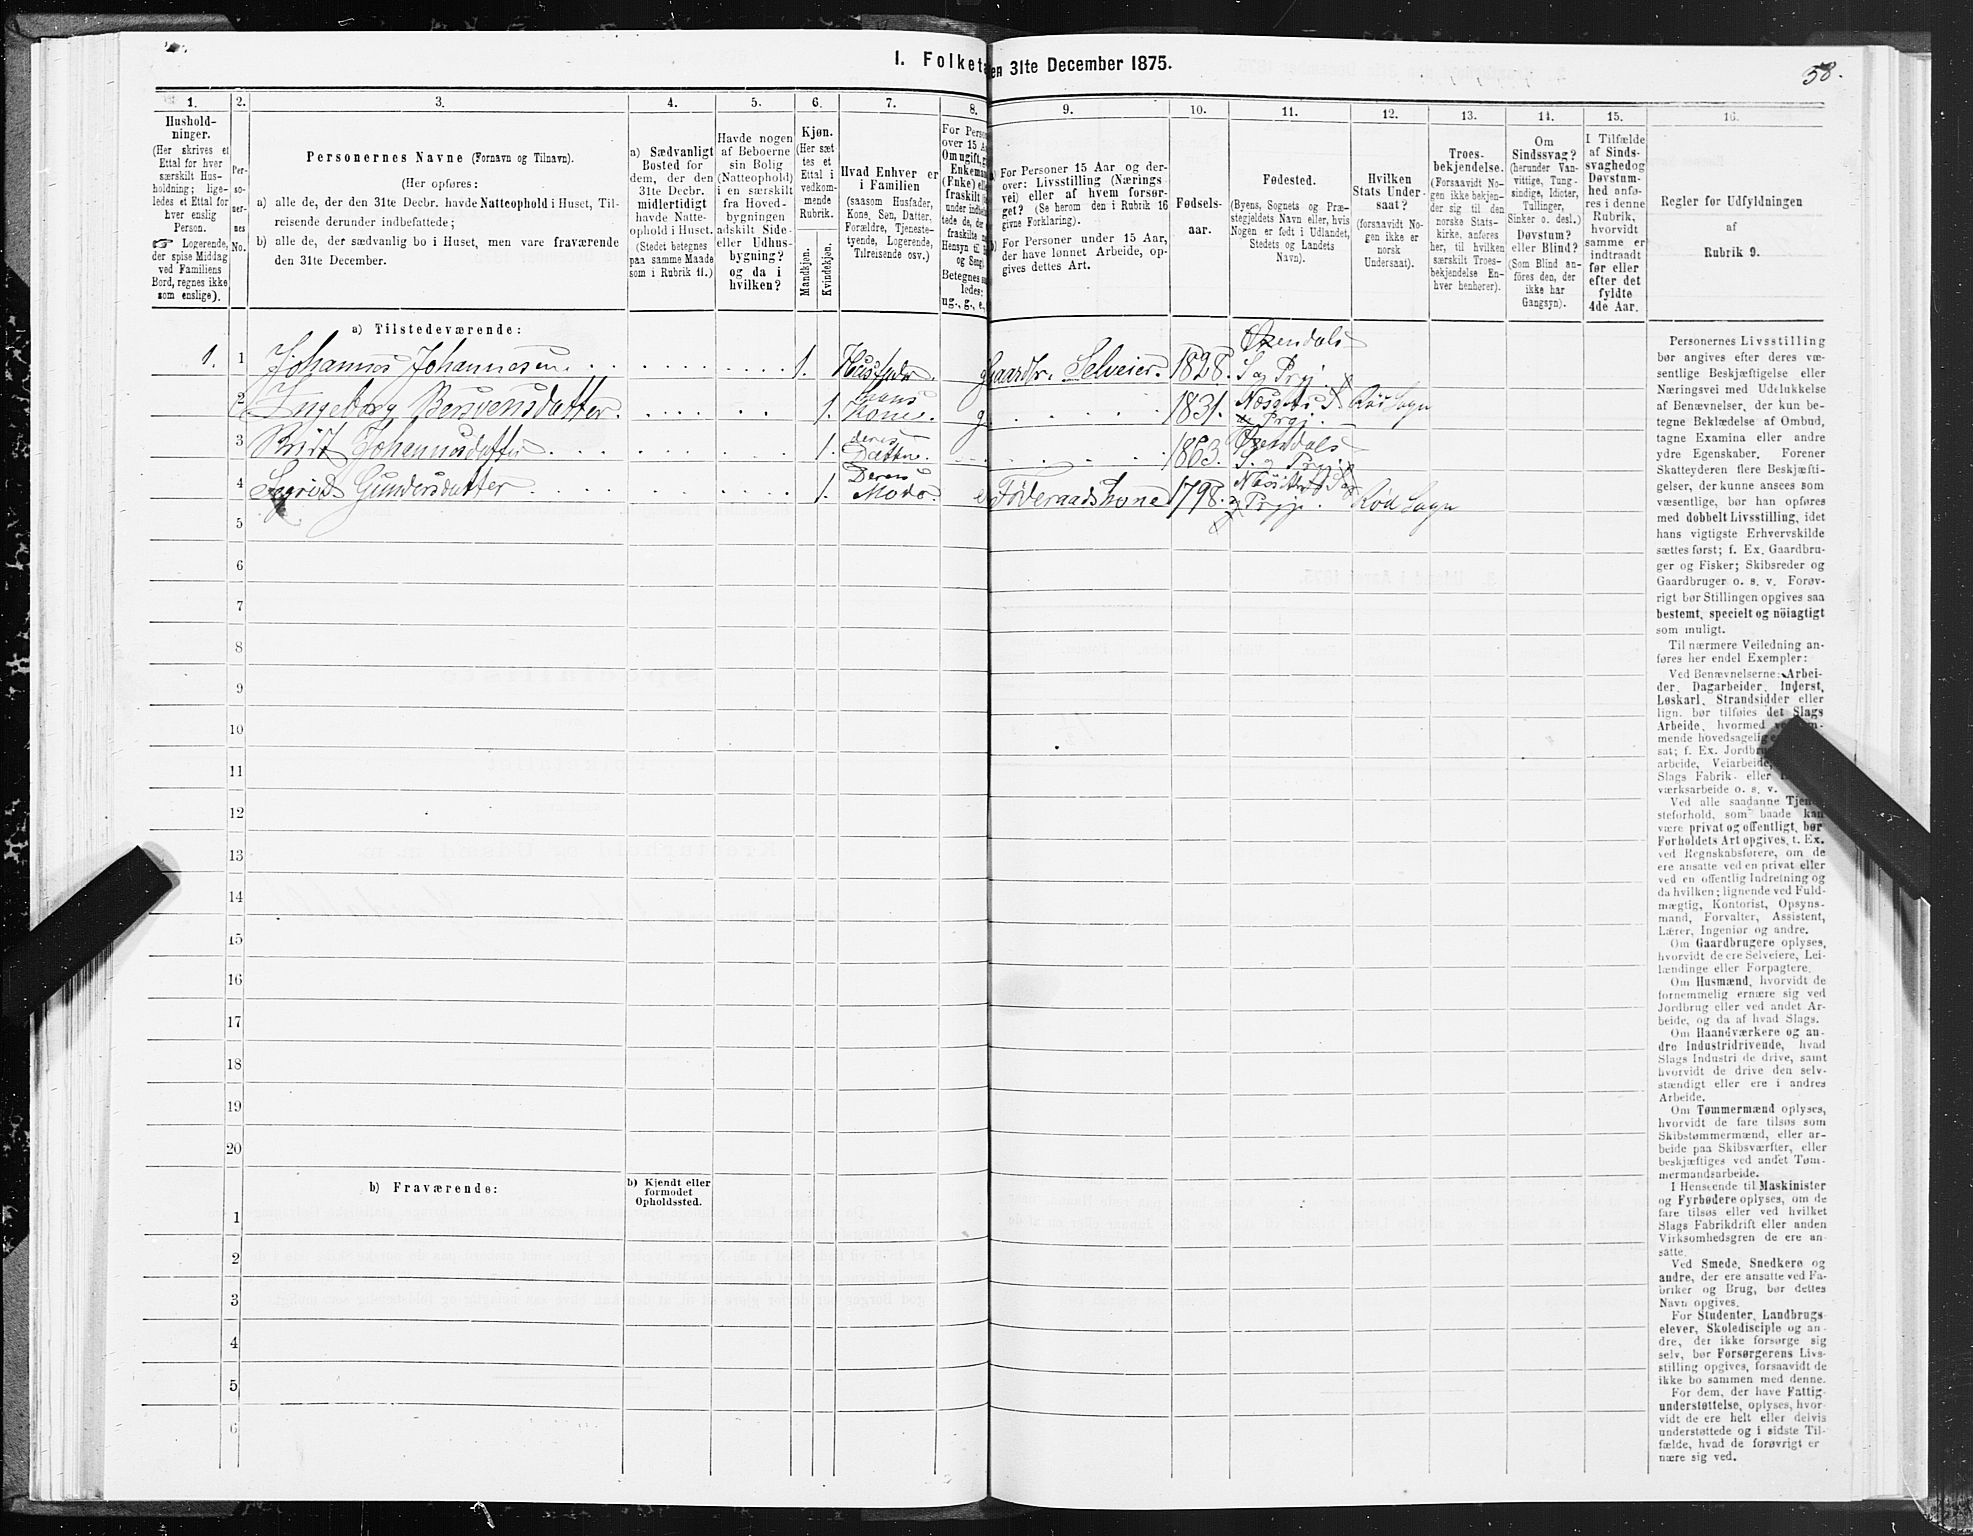 I. Folketæ
en 31te December 1875.
58.
1.
Hushold-
ninger.
(Her skrives et
Ettal for hver
særskilt Hus-
holdning; lige-
ledes et Ettal for
hver enslig
Person.
☞ Logerende,
der spise Middag
ved Familiens
Bord, regnes ikke
som enslige).
2.
Per-
so-
ner-
nes
No.
3.
Personernes Navne (Fornavn og Tilnavn).
(Her opføres:
a) alle de, der den 31te Decbr. havde Natteophold i Huset, Til-
reisende derunder indbefattede;
b) alle de, der sædvanlig bo i Huset, men vare fraværende
den 31te December.
4.
a) Sædvanligt
Bosted for
dem, der den
31te Decbr.
midlertidigt
havde Natte-
ophold i Huset.
(Stedet betegnes
paa samme Maade
som i Rubrik 11.)
5.
Havde nogen
af Beboerne
sin Bolig
(Natteophold)
i en særskilt
fra Hoved-
bygningen
adskilt Side-
eller Udhus-
bygning?
og da i
hvilken?
6.
Kjøn.
(Her sæt-
tes et
Ettal i
vedkom-
mende
Rubrik.
Mandkjøn.
Kvindekjøn.
7.
Hvad Enhver er
i Familien
(saasom Husfader,
Kone, Søn, Datter,
Forældre, Tjeneste-
tyende, Logerende,
Tilreisende osv.)
8.
For Perso
over 15 A
Om ugift, g
Enkema
(Enke) el
fraskilt
under indb
tede de, de
fraskilte
Hensyn til
og Seng
Betegnes s
ledes:
ug., g., e.,
9.
a) For Personer 15 Aar og der-
over: Livsstilling (Nærings-
vei) eller af hvem forsør-
get? (Se herom den i Rubrik 16
givne Forklaring).
b) For Personer under 15 Aar,
der have lønnet Arbeide, op-
gives dettes Art.
10.
Fødsels-
aar.
11.
Fødested.
(Byens, Sognets og Præ-
stegjeldets Navn eller, hvis
Nogen er født i Udlandet,
Stedets og Landets
Navn).
12.
Hvilken
Stats Under-
saat?
(forsaavidt No-
gen ikke er
norsk
Undersaat).
13.
Troes-
bekjendelse.
(Forsaavidt No-
gen ikke bekjen-
der sig til den
norske Stats-
kirke, anføres
her, til hvilken
særskilt Troes-
bekjendelse En-
hver henhører).
14.
Om
Sindssvag?
(herunder Van-
vittige, Tung-
sindige, Idioter,
Tullinger,
Sinker o. desl.)
Døvstum?
eller Blind?
(Som Blind an-
føres den, der
ikke har
Gangsyn).
15.
I Tilfælde
af Sinds-
svaghed og
Døvstum-
hed anfø-
res i denne
Rubrik,
hvorvidt
samme er
indtraadt
før eller
efter det
fyldte
4de Aar.
16.
Regler for Udfyldningen
af
Rubrik 9.
a) Tilstedeværende:
1. 1 Johannes Johannesen 1. Husfader. g Gaardbr. Selveier. 1828. Øxendals
S og Prgj.
2 Ingeborg Bersvensdatter. 1. hans
Kone. g 1831. Næssets S Rød Sogn
og Prgj.
3 Brit Johannesdatter 1. deres
Datter. 1863. Øxendals
S. og Prgj.
4 Segrid Gundersdatter 1. Deres
Moder. e Føderaadskone 1798. Næssets S og
Prgj. Rød Sogn
5
6
7
8
9
10
11
12
13
14
15
16
17
18
19
20
b) Fraværende:
b) Kjendt eller
formodet
Opholdssted.
1
2
3
4
5
6
Personernes Livsstilling
bør angives efter deres væ-
sentlige Beskjæftigelse eller
Næringsvei med Udelukkelse
af Benævnelser, der kun be-
tegne Beklædelse af Ombud,
tagne Examina eller andre
ydre Egenskaber. Forener
Skatteyderen flere Beskjæfti-
gelser, der kunne ansees som
væsentlige, bør han opføres
med dobbelt Livsstilling, idet
hans vigtigste Erhvervskilde
sættes først; f. Ex. Gaardbru-
ger og Fisker; Skibsreder og
Gaardbruger o. s. v. Forøv-
rigt bør Stillingen opgives saa
bestemt, specielt og nöiagtigt
som muligt.
Til nærmere Veiledning an-
føres her endel Exempler:
Ved Benævnelserne: Arbei-
der, Dagarbeider, Inderst,
Løskarl, Strandsidder eller
lign. bør tilføies det Slags
Arbeide, hvormed
mende hovedsagelig
sat; f. Ex.
arbeide, Veiarbeide,
Slags Fabrik- eller
værksarbeide o. s. v.
Ved alle saadanne
steforhold, som baade kan
være privat og offentligt, bør
Forholdets Art opgives, t. Ex.
ved Regnskabsførere, om de
ere ansatte ved en privat eller
ved en offentlig Indretning og
da hvilken; lignende ved Fuld-
mægtig, Kontorist, Opsyns-
mand, Forvalter, Assistent,
Lærer, Ingeniør og andre.
Om Gaardbrugere oplyses,
hvorvidt de ere Selveiere, Lei-
lændinge eller Forpagtere.
Om Husmænd, hvorvidt de
fornemmelig ernære sig ved
Jordbrug eller ved andet Ar-
beide, og da af hvad Slags.
Om Haandværkere og an-
dre Industridrivende, hvad
Slags Industri de drive, samt
hvorvidt de drive den selv-
stændigt eller ere i andres
Arbeide.
Om Tømmermænd oplyses,
hvorvidt de fare tilsøs som
Skibstømmermænd, eller ar-
beide paa Skibsværfter, eller
beskjæftiges ved andet Tøm-
mermandsarbeide.
I Henseende til Maskinister
og Fyrbødere oplyses, om de
fare tilsøs eller ved hvilket
Slags Fabrikdrift eller anden
Virksomhedsgren de ere an-
satte.
Ved Smede, Snedkere og
andre, der ere ansatte ved Fa-
briker og Brug, bør dettes
Navn opgives.
For Studenter, Landbrugs-
elever, Skoledisciple og an-
dre, der ikke forsørge sig
selv, bør Forsørgerens Livs-
stilling opgives, forsaavidt de
ikke bo sammen med denne.
For dem, der have Fattig-
understøttelse, oplyses, hvor-
vidt de ere helt eller delvis
understøttede og i sidste Til-
fælde, hvad de forøvrigt er
nære sig ved.